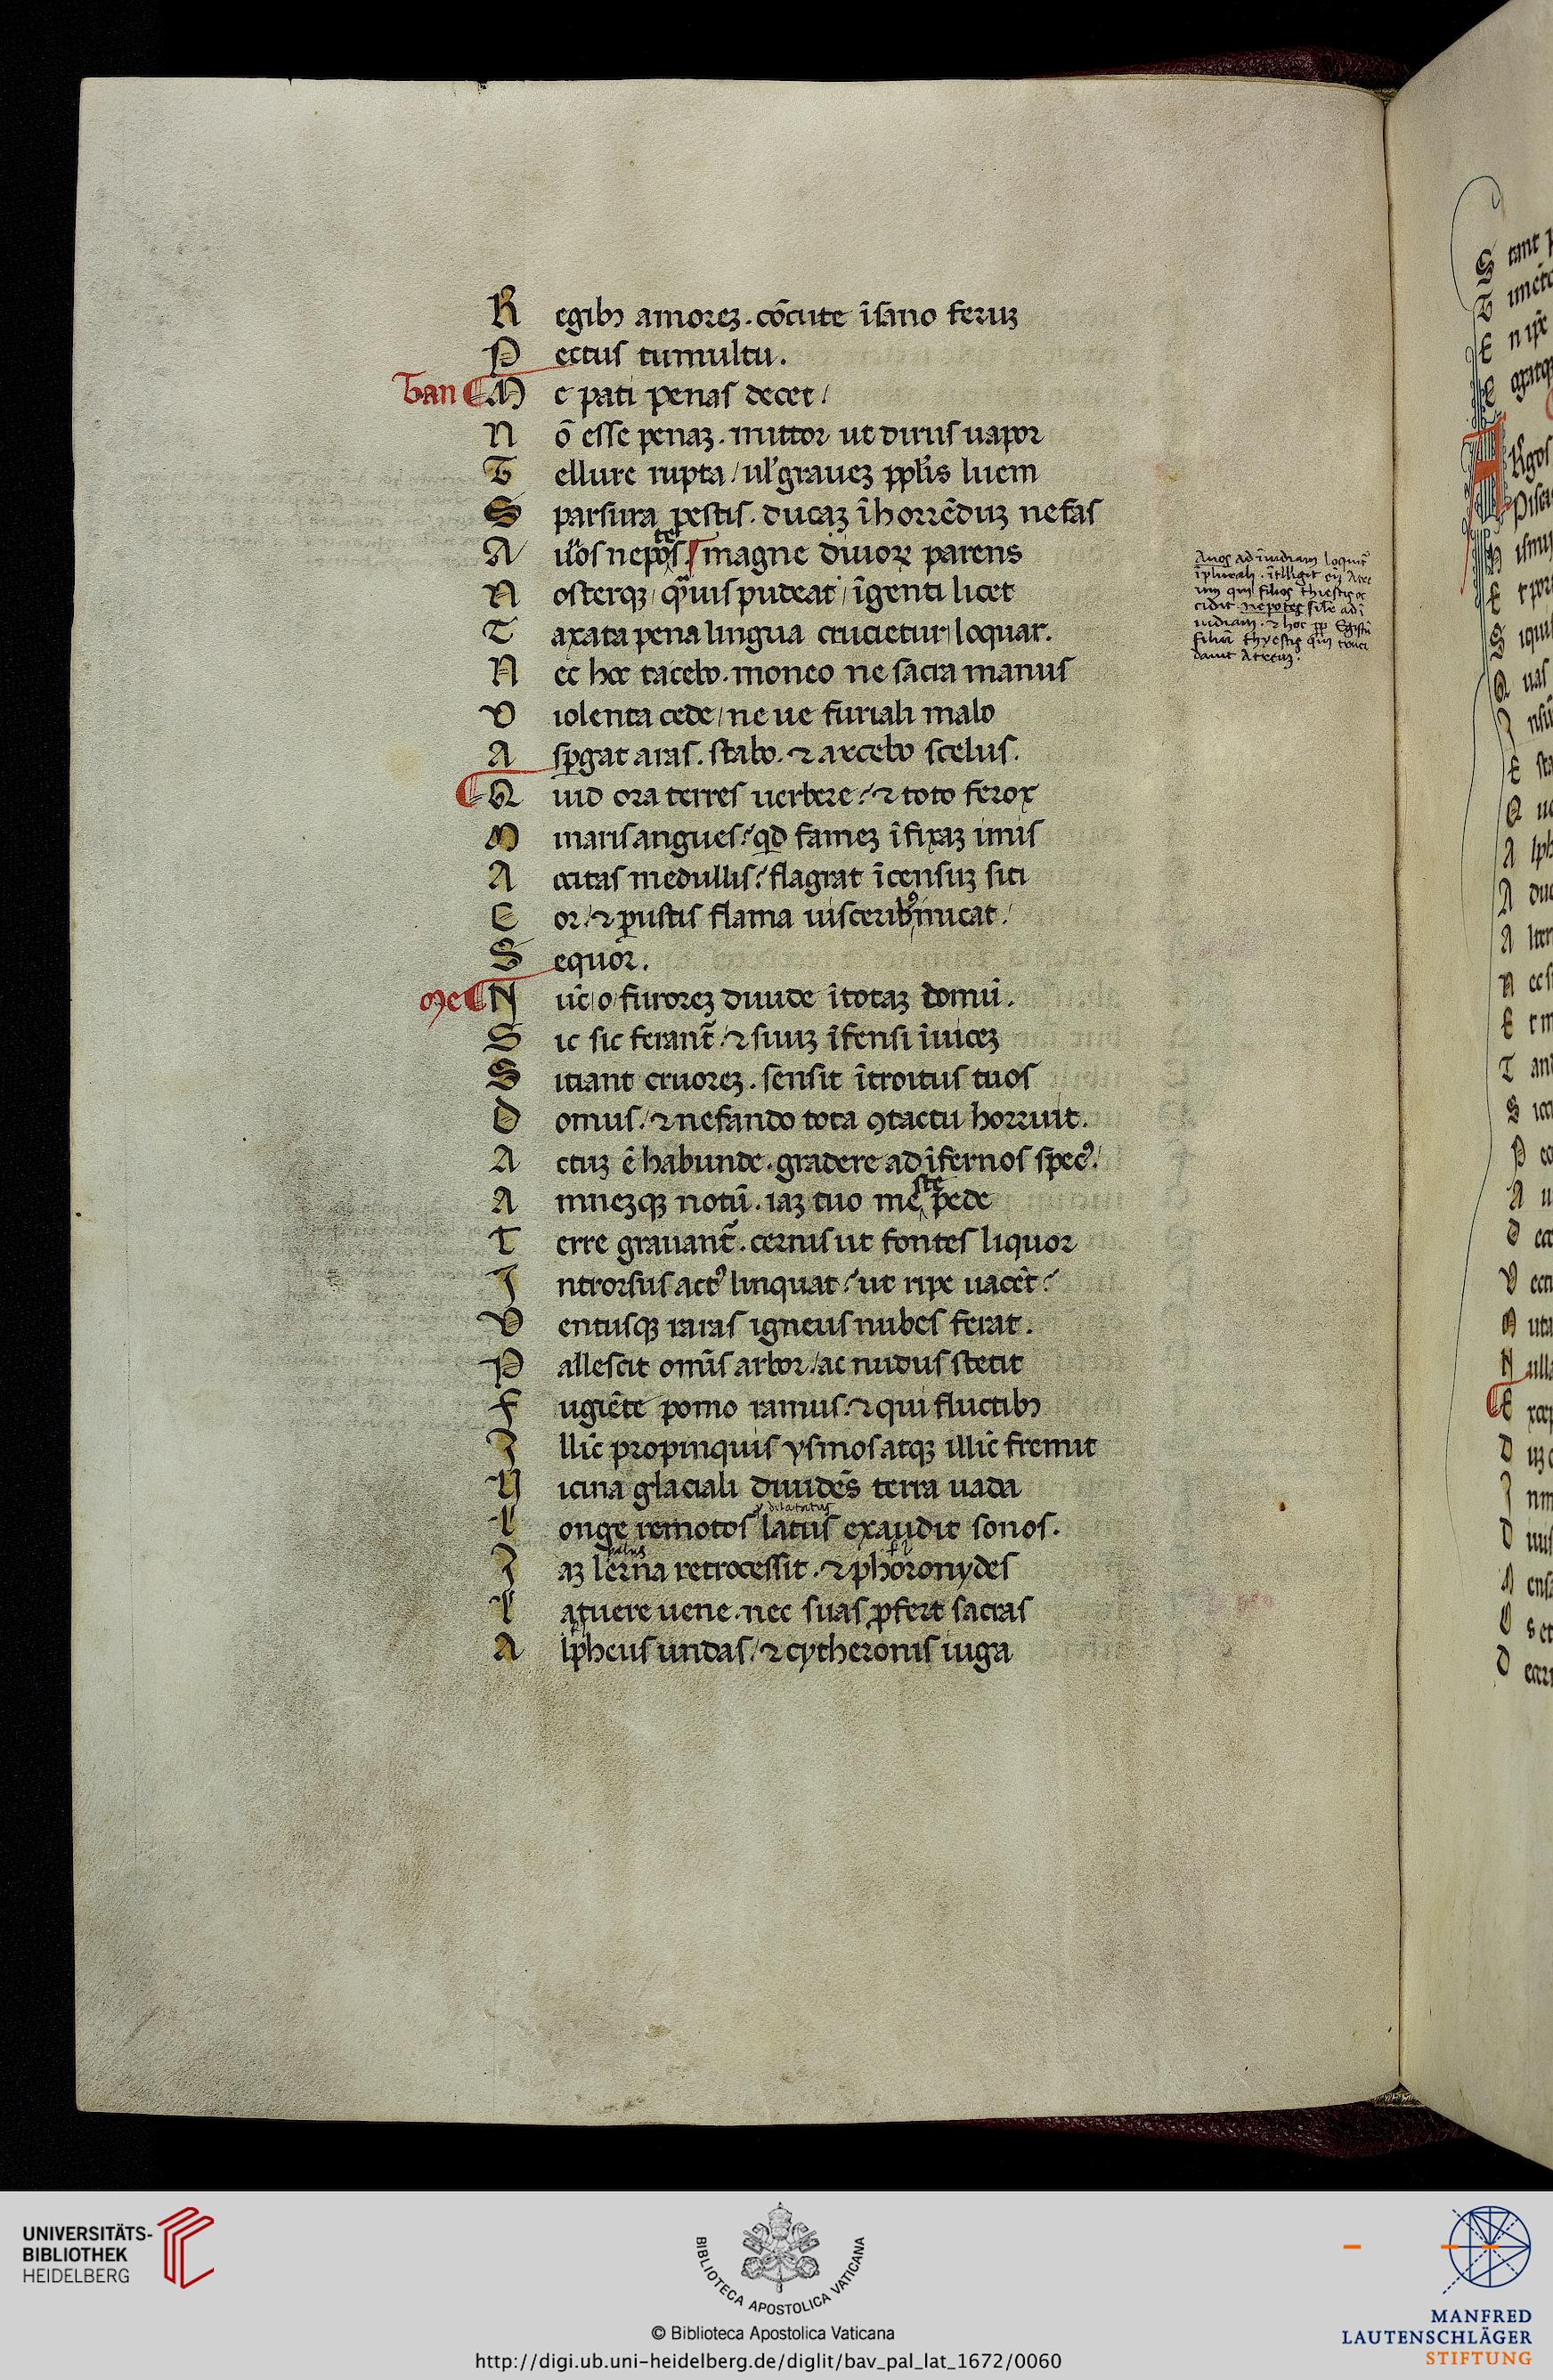 R egibꝫ amoreꝫ. cōcute īsano feruꝫ
P ectus tumultu.
Tan M e pati penas decet/
N ō esse penaꝫ. mittor ut dirus uapor
T ellure rupta/ ul' graueꝫ ppl'is luem
S parsura pestis. ducaꝫ ī horrēduꝫ nefas
A uūos nepotes. magne diuoꝝ parens
N osterqꝫ/ quis pudeat/ īgenti licet
T axata pena lingua crucietur/ loquar.
N ec hoc tacebo. moneo ne sacra manus
V iolenta cede/ ne ue furiali malo
A spgat aras. stabo. ⁊ arcebo scelus.
Q uid ora terres uerbere/ ⁊ toto ferox
M inaris angues/ qd fameꝫ īfixaꝫ imis
A gitas medullis/ flagrat īcensuꝫ siti
C or/ ⁊ pustis flama uisceribꝰ micat/
S equor.
Me N ūc/ o furoreꝫ diuide ī totaꝫ domū.
S ic sic ferant̄/ ⁊ suuꝫ īfensi īuiceꝫ
S itiant cruoreꝫ. sensit ītroitus tuos
D omus/ ⁊ nefando tota ꝯtactu horruit.
A ctuꝫ ē habunde. gradere ad īfernos specꝰ/
A mneꝫqꝫ notū. iaꝫ tuo meste pede
T erre grauant̄. cernis ut fontes liquor
I ntrorsus actꝰ linquat/ ut ripe uacēt/
V entusqꝫ raras igneus nubes ferat.
P allescit om̄is arbor/ ac nudus stetit
F ugiēte pomo ramus. ⁊ qui fluctibꝫ
I llīc propinquis ysmos atqꝫ illīc fremit
V icina glaciali diuidēs terra uada
dilatatus
L onge remotos latus exaudit sonos.
palus
I aꝫ lerna retrocessit. ⁊ phoronydes
L atuere uene. nec suas ꝓfert sacras
A lpheus undas/ ⁊ cytheronis iuga
Auos ad īuidiam loquit̄
ī plurali. ītlligit
filios thiestis oc
cidit nepotes
uidiam. ⁊ hoc pp Egistū
filiū thyestis
dauit Atreuꝫ.
UNIVERSITÄTS-
BIBLIOTHEK
HEIDELBERG
BIBLIOTECA APOSTOLICA VATICANA
© Biblioteca Apostolica Vaticana
http://digi.ub.uni-heidelberg.de/diglit/bav_pal_lat_1672/0060
MANFRED
LAUTENSCHLÄGER
STIFTUNG